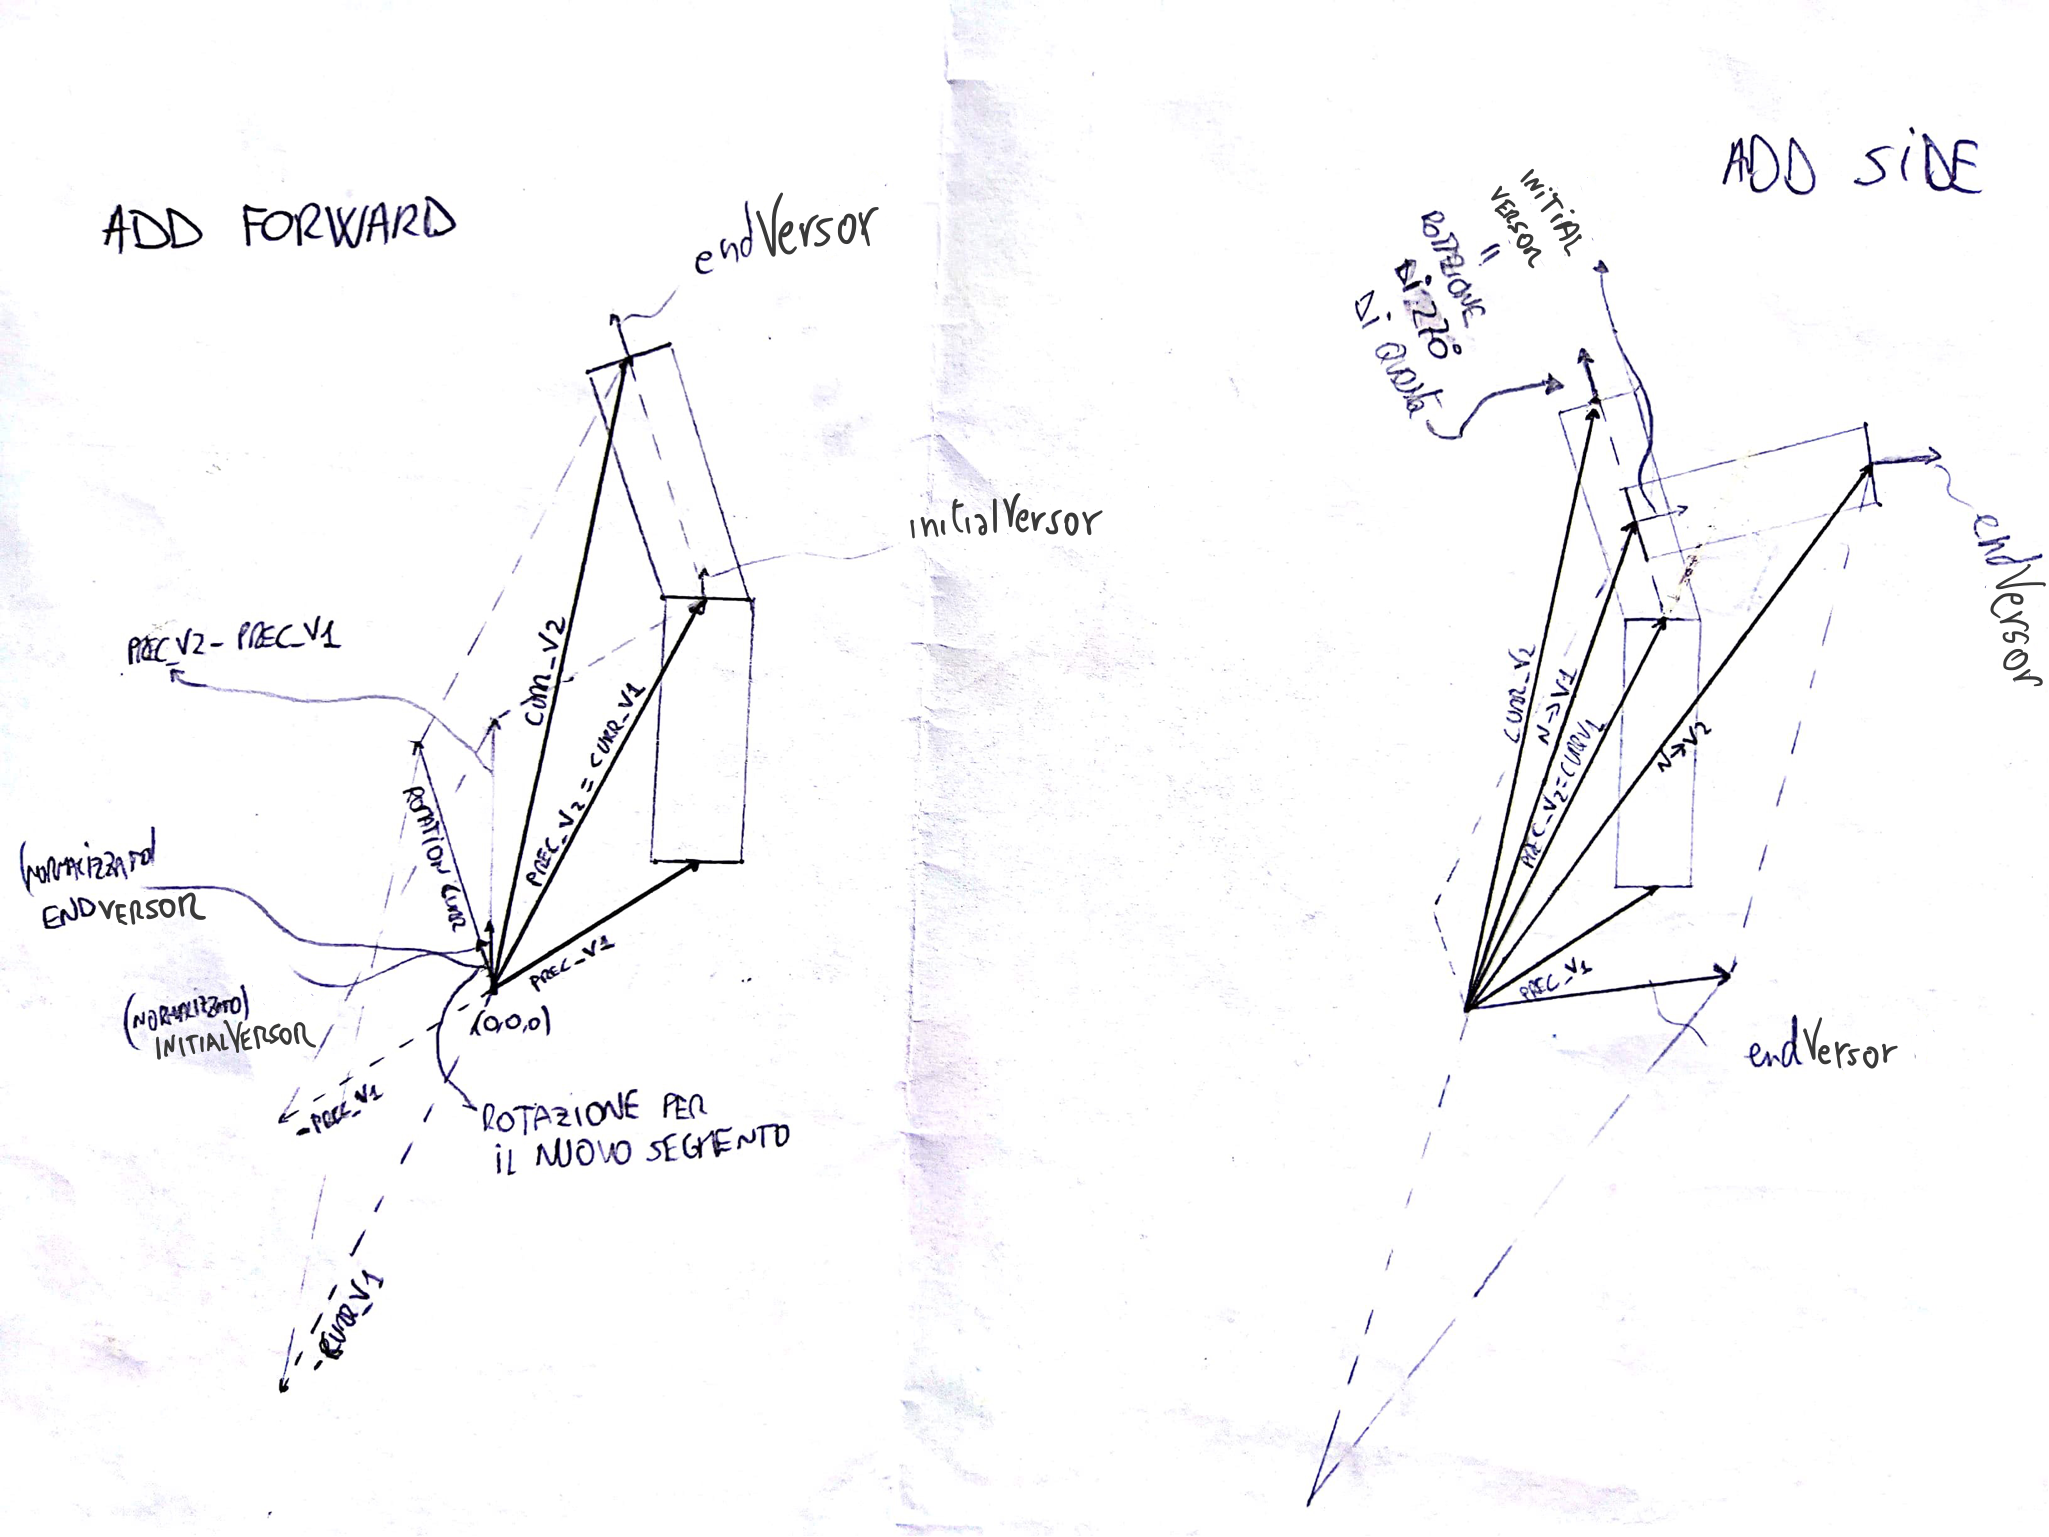 ADD FORWARD
endVersor
initialVersor
PREC_V2 - PREC_V1
CURR_V2
PREC_V2 = CURR_V1
ROTATION CURR
(NORMALIZZATO)
ENDVERSOR
PREC_V1
(NORMALIZZATO)
INITIALVERSOR
(0,0,0)
-PREC_V1
ROTAZIONE PER
IL NUOVO SEGMENTO
-CURR_V1
ADD SIDE
INITIAL
VERSOR
=
ROTAZIONE
DI 270°
DI QUESTA
endVersor
CURR_V2
N->V1
PREC_V2=CURRV1
N->V2
PREC_V1
endVersor